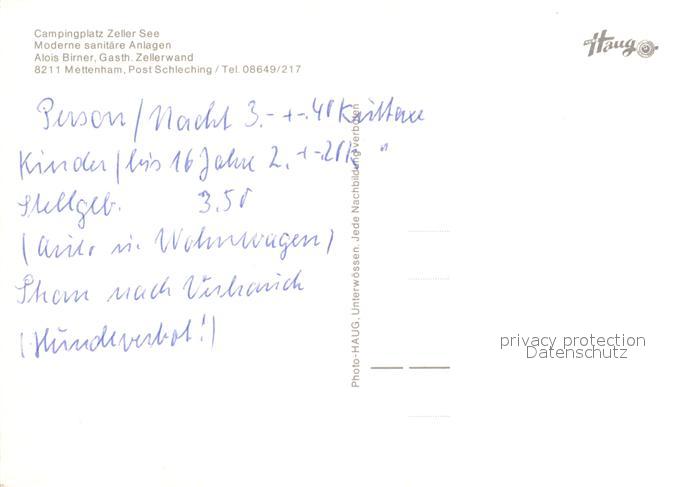 Campingplatz Zeller See
Moderne sanitäre Anlagen
Alois Birner, Gasth. Zellerwand
8211 Mettenham, Post Schleching / Tel. 08649/217
Haug
Person / Nacht 3.- + -.40 Kurtaxe
Kinder / bis 16 Jahre 2.- + -.20 K "
Stellgeb. 3.50
(Auto u. Wohnwagen)
Strom nach Verbrauch
(Hundeverbot!)
Photo-HAUG, Unterwössen. Jede Nachbildung verboten
privacy protection
Datenschutz